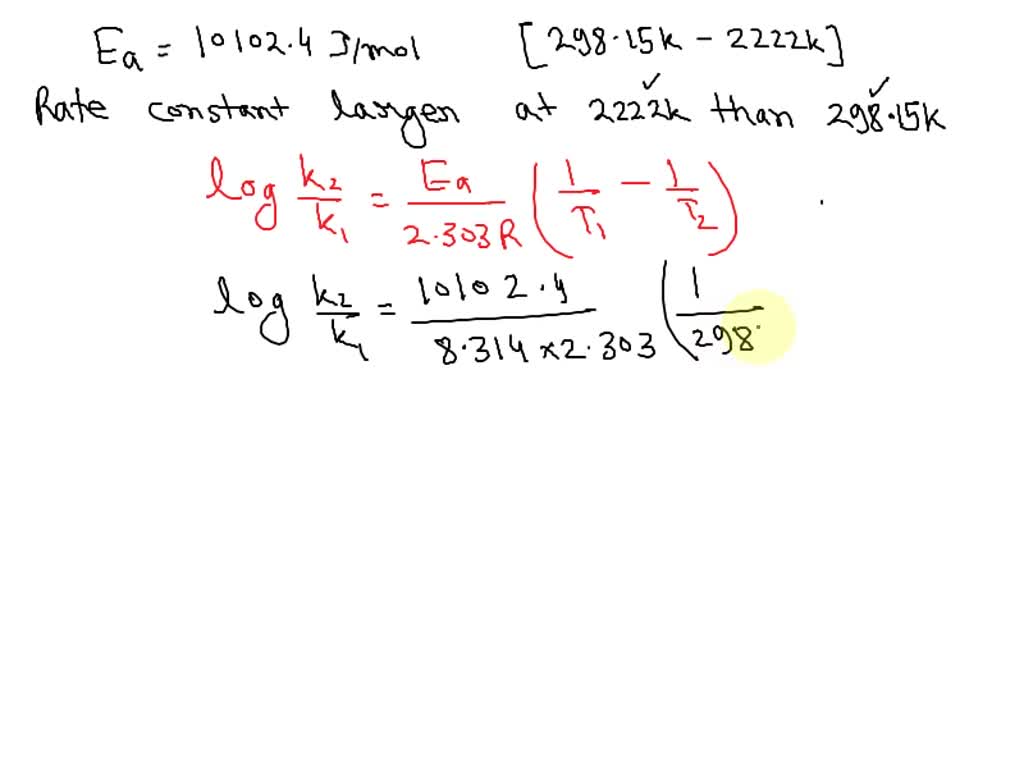 Ea = 10102.4 J/mol [298.15k - 2222k]
Rate constant larger at 2222k than 298.15k
log k2/k1 = Ea/2.303R (1/T1 - 1/T2)
log k2/k1 = 10102.4/8.314×2.303 (1/298.